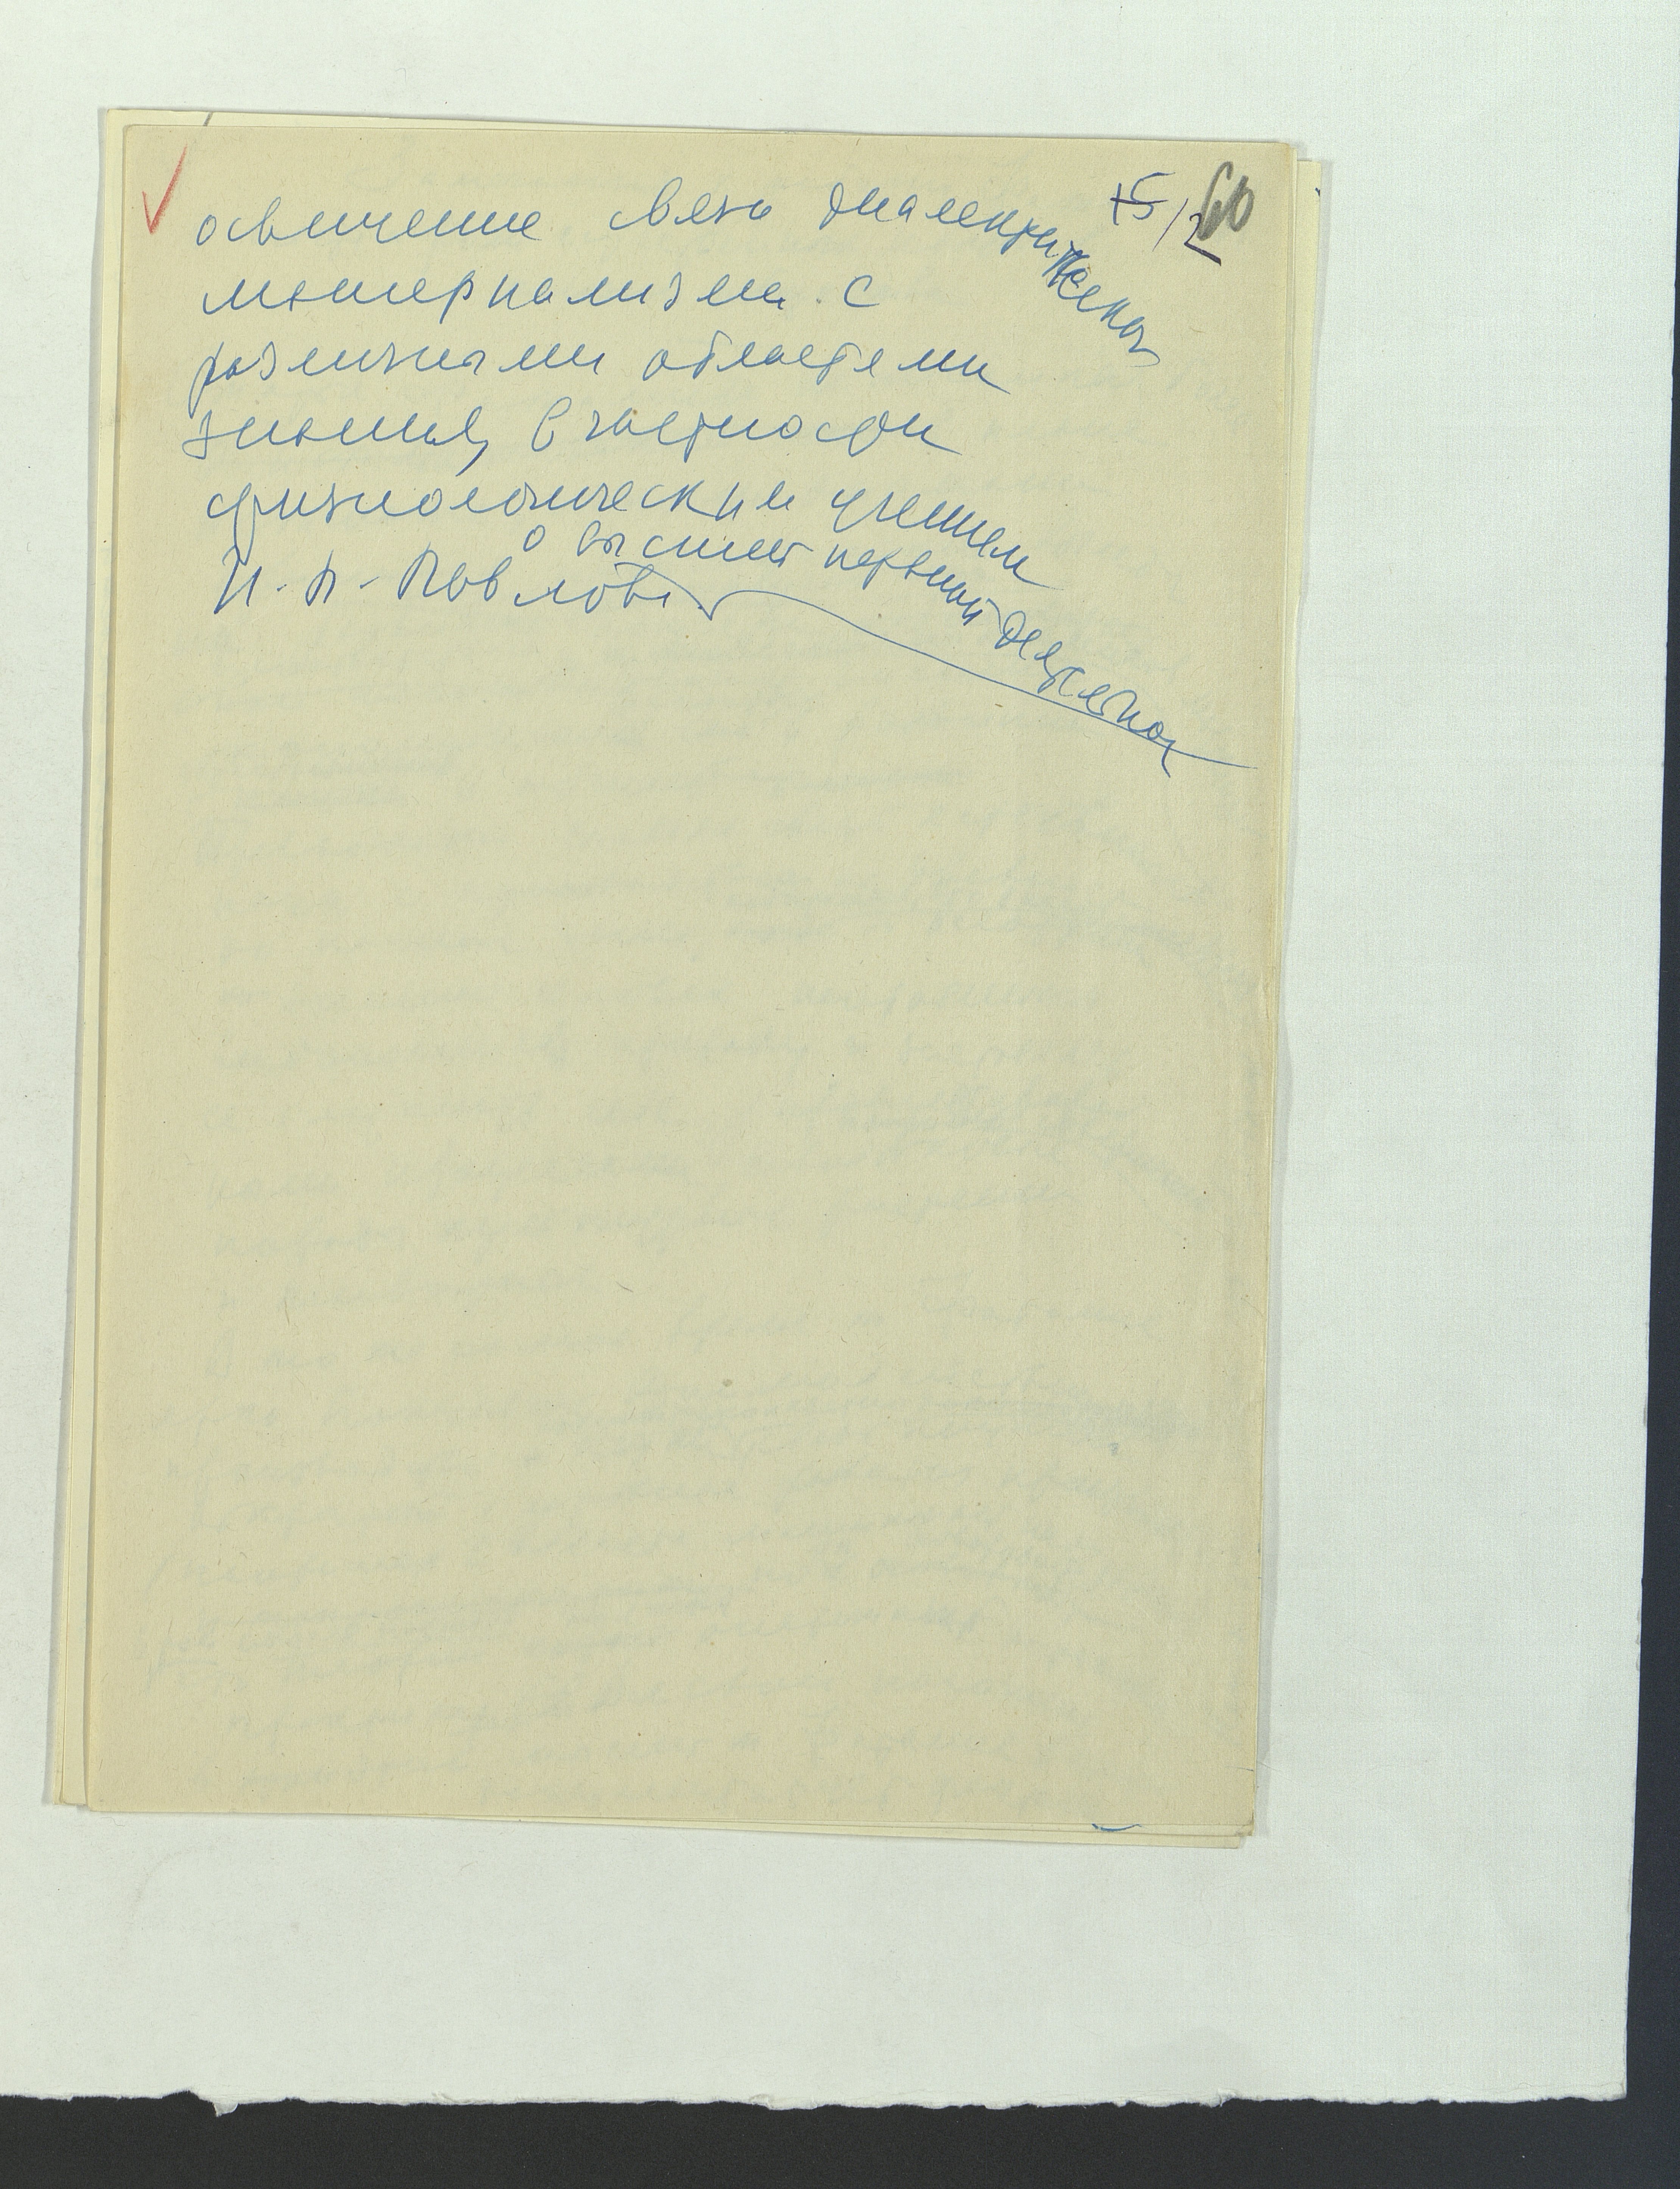 15/2 60
освещение связи диалектического
материализма с
различными областями
знания, в частности
физиологическим учением
И. П. Павлова о высшей нервной деятельности